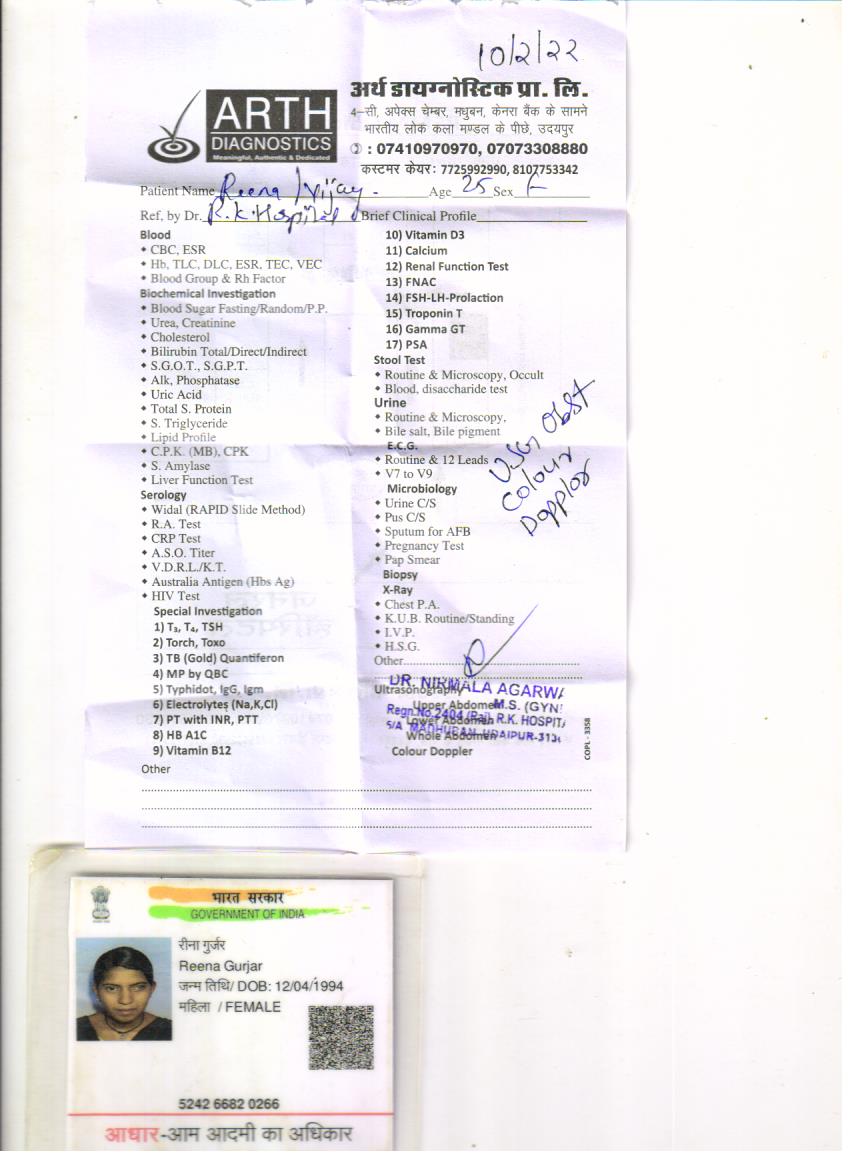 10/2/22
ARTH
DIAGNOSTICS
Meaningful, Authentic & Dedicated
अर्थ डायग्नोस्टिक प्रा. लि.
4-सी, अपेक्स चेम्बर, मधुबन, केनरा बैंक के सामने
भारतीय लोक कला मण्डल के पीछे, उदयपुर
: 07410970970, 07073308880
कस्टमर केयर: 7725992990, 8107753342
Patient Name Reena / Vijay. Age 25 Sex F
Ref, by Dr. R.K. Hospital Brief Clinical Profile
Blood
CBC, ESR
Hb, TLC, DLC, ESR, TEC, VEC
Blood Group & Rh Factor
Biochemical Investigation
Blood Sugar Fasting/Random/P.P.
Urea, Creatinine
Cholesterol
Bilirubin Total/Direct/Indirect
S.G.O.T., S.G.P.T.
Alk, Phosphatase
Uric Acid
Total S. Protein
S. Triglyceride
Lipid Profile
C.P.K. (MB), CPK
S. Amylase
Liver Function Test
Serology
Widal (RAPID Slide Method)
R.A. Test
CRP Test
A.S.O. Titer
V.D.R.L./K.T.
Australia Antigen (Hbs Ag)
HIV Test
Special Investigation
1) T₃, T₄, TSH
2) Torch, Toxo
3) TB (Gold) Quantiferon
4) MP by QBC
5) Typhidot, IgG, Igm
6) Electrolytes (Na,K,Cl)
7) PT with INR, PTT
8) HB A1C
9) Vitamin B12
Other
10) Vitamin D3
11) Calcium
12) Renal Function Test
13) FNAC
14) FSH-LH-Prolaction
15) Troponin T
16) Gamma GT
17) PSA
Stool Test
Routine & Microscopy, Occult
Blood, disaccharide test
Urine
Routine & Microscopy,
Bile salt, Bile pigment
E.C.G.
Routine & 12 Leads
V7 to V9
Microbiology
Urine C/S
Pus C/S
Sputum for AFB
Pregnancy Test
Pap Smear
Biopsy
X-Ray
Chest P.A.
K.U.B. Routine/Standing
I.V.P.
H.S.G.
Other
USG Obst
Colour
Dopplor
Ultrasonography
Upper Abdomen
Lower Abdomen
Whole Abdomen
Colour Doppler
DR. NIRMALA AGARWA
M.S. (GYN
Regn.No.2404 (Raj) R.K. HOSPIT
5/A MADHUBAN, UDAIPUR-313
COPL - 3358
भारत सरकार
GOVERNMENT OF INDIA
रीना गुर्जर
Reena Gurjar
जन्म तिथि/ DOB: 12/04/1994
महिला / FEMALE
5242 6682 0266
आधार-आम आदमी का अधिकार